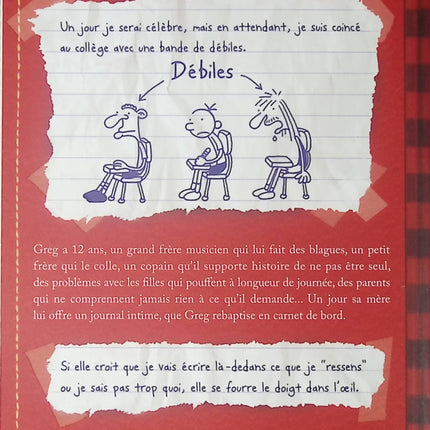 Un jour je serai célèbre, mais en attendant, je suis coincé
au collège avec une bande de débiles.
Débiles
Greg a 12 ans, un grand frère musicien qui lui fait des blagues, un petit
frère qui le colle, un copain qu'il supporte histoire de ne pas être seul,
des problèmes avec les filles qui pouffent à longueur de journée, des parents
qui ne comprennent jamais rien à ce qu'il demande... Un jour sa mère
lui offre un journal intime, que Greg rebaptise en carnet de bord.
Si elle croit que je vais écrire là-dedans ce que je "ressens"
ou je sais pas trop quoi, elle se fourre le doigt dans l'œil.